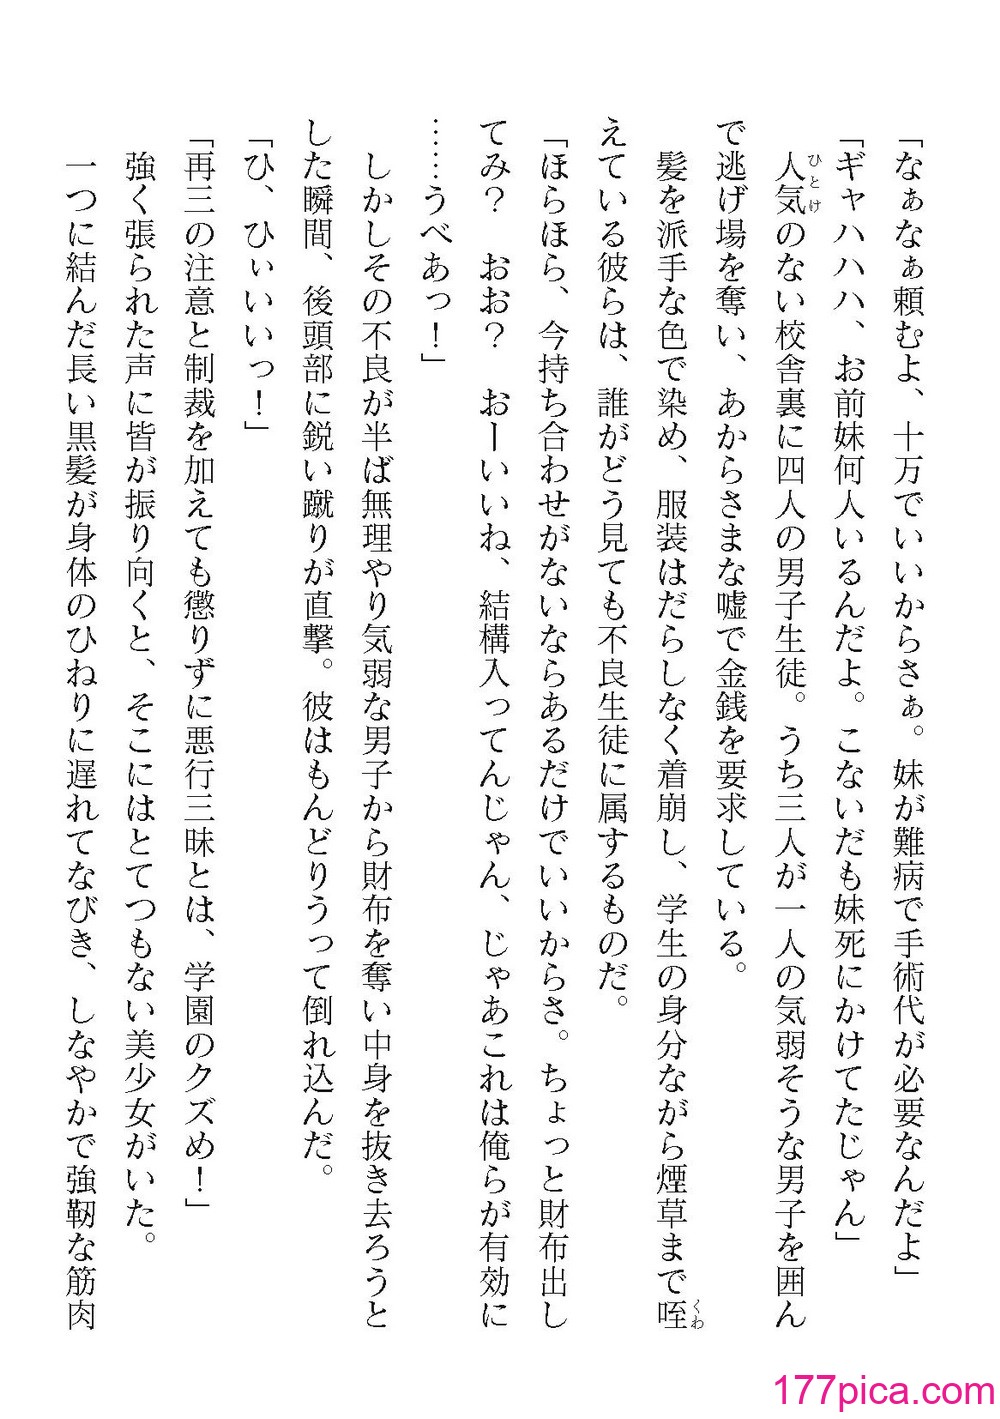 「なぁなぁ頼むよ、十万でいいからさぁ。妹が難病で手術代が必要なんだよ」
「ギャハハハ、お前妹何人いるんだよ。こないだも妹死にかけてたじゃん」
人気のない校舎裏に四人の男子生徒。うち三人が一人の気弱そうな男子を囲ん
ひとけ
で逃げ場を奪い、あからさまな嘘で金銭を要求している。
髪を派手な色で染め、服装はだらしなく着崩し、学生の身分ながら煙草まで咥
くわ
えている彼らは、誰がどう見ても不良生徒に属するものだ。
「ほらほら、今持ち合わせがないならあるだけでいいからさ。ちょっと財布出し
てみ？　おお？　おーいいね、結構入ってんじゃん、じゃあこれは俺らが有効に
……うべあっ！」
しかしその不良が半ば無理やり気弱な男子から財布を奪い中身を抜き去ろうと
した瞬間、後頭部に鋭い蹴りが直撃。彼はもんどりうって倒れ込んだ。
「ひ、ひぃいいっ！」
「再三の注意と制裁を加えても懲りずに悪行三昧とは、学園のクズめ！」
強く張られた声に皆が振り向くと、そこにはとてつもない美少女がいた。
一つに結んだ長い黒髪が身体のひねりに遅れてなびき、しなやかで強靭な筋肉
177pica.com